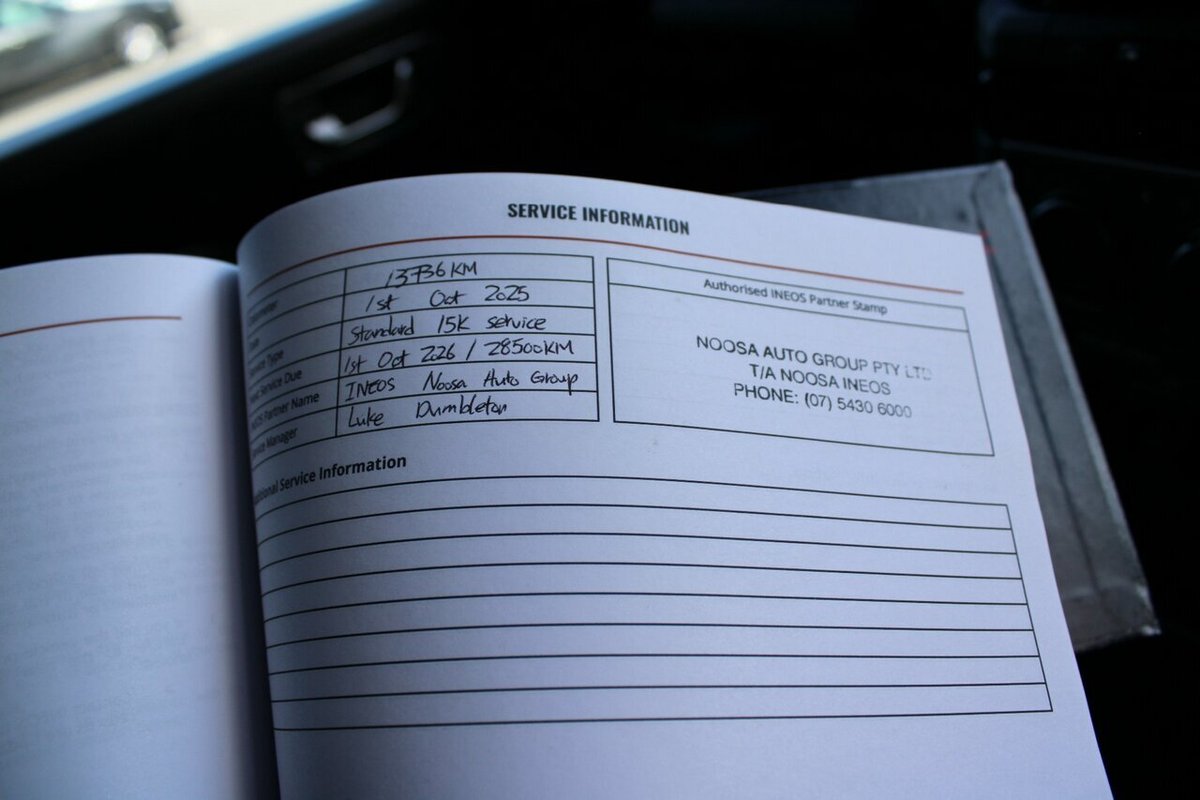 SERVICE INFORMATION
13736 KM
Date 1st Oct 2025
Service Type Standard 15K service
Service Due 1st Oct 2026 / 28500KM
INEOS Partner Name INEOS Noosa Auto Group
Service Manager Luke Dumbleton
Authorised INEOS Partner Stamp
NOOSA AUTO GROUP PTY LTD
T/A NOOSA INEOS
PHONE: (07) 5430 6000
Service Information